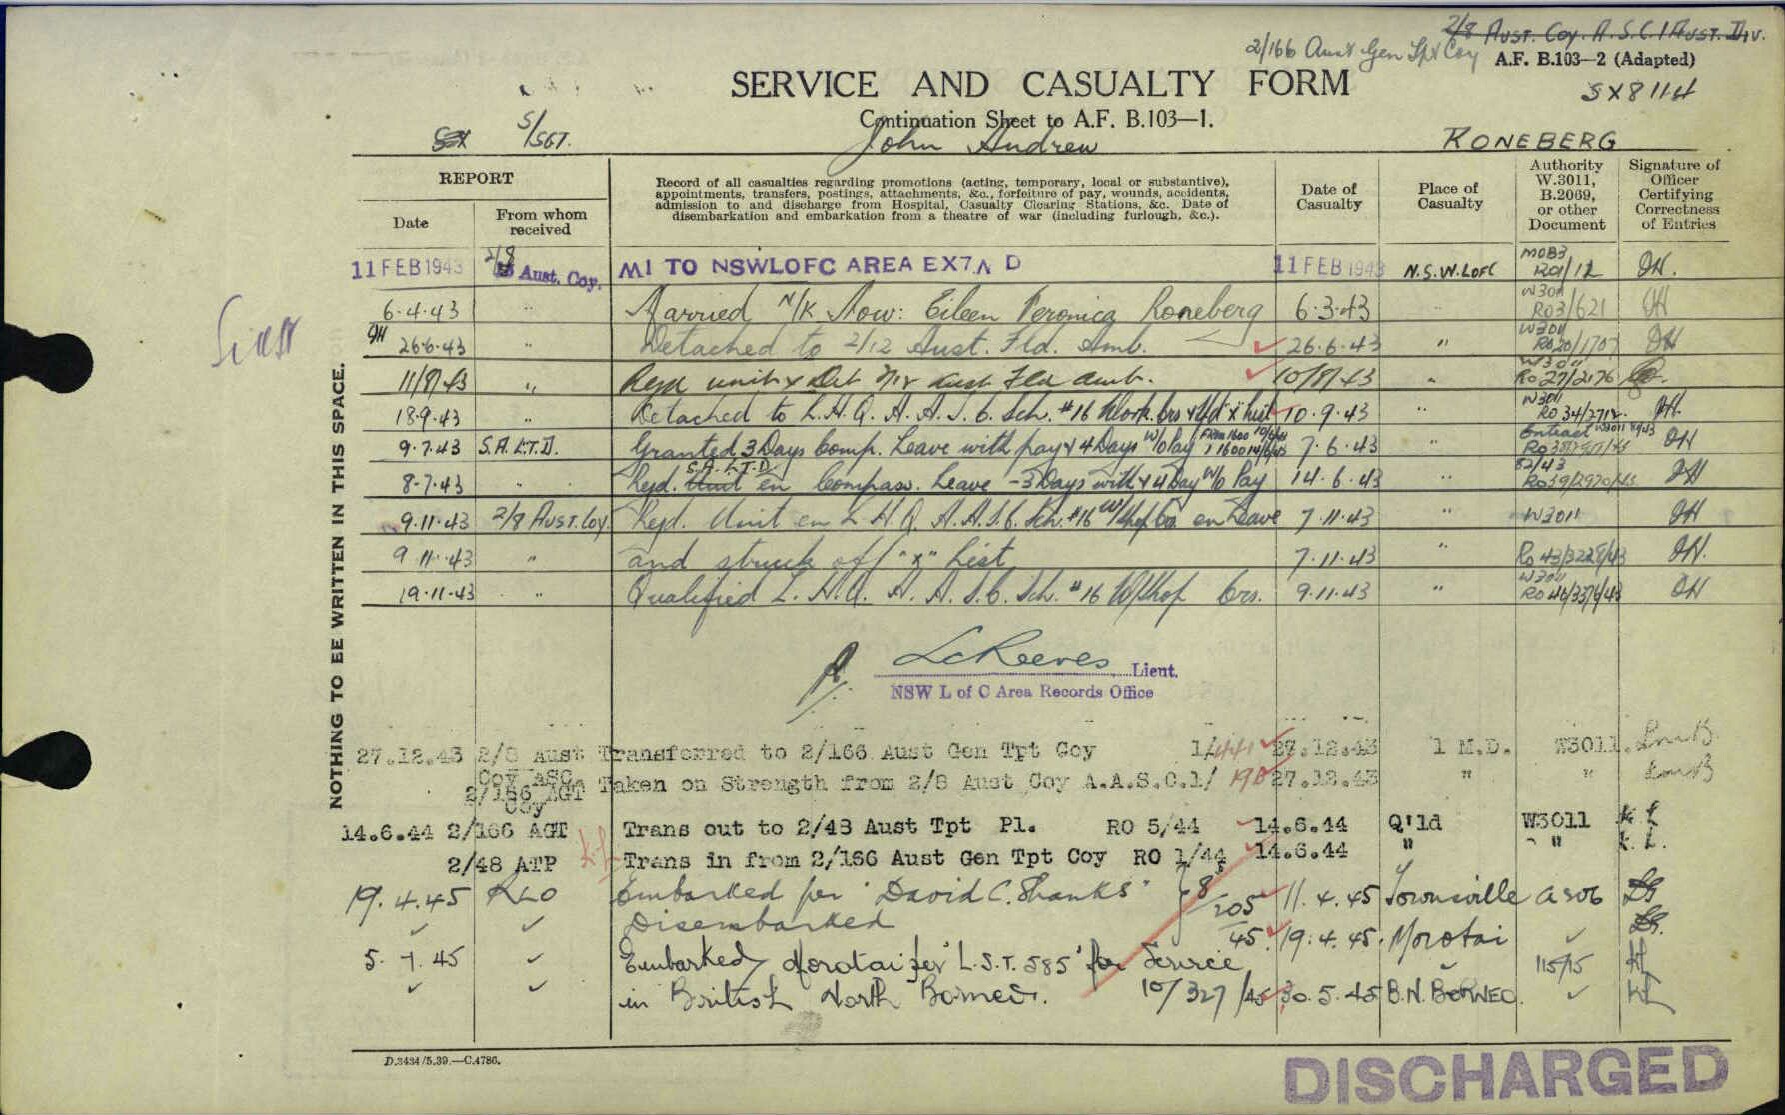 2/8 AUST. COY. A.S.C. 1 AUST. DIV.
2/166 Aust Gen Tpt Coy
A.F. B.103—2 (Adapted)
SERVICE AND CASUALTY FORM
SX8114
Continuation Sheet to A.F. B.103—1.
S/SGT. John Andrew RONEBERG
REPORT
Date
From whom received
Record of all casualties regarding promotions (acting, temporary, local or substantive),
appointments, transfers, postings, attachments, &c., forfeiture of pay, wounds, accidents,
admission to and discharge from Hospital, Casualty Clearing Stations, &c. Date of
disembarkation and embarkation from a theatre of war (including furlough, &c.).
Date of Casualty
Place of Casualty
Authority W.3011, B.2069, or other Document
Signature of Officer Certifying Correctness of Entries
11 FEB 1943 2/8 Aust. Coy. MI TO NSWLOFC AREA EX 7 D 11 FEB 1943 N.S.W. LofC
6.4.43 " Married N/K Now: Eileen Veronica Roneberg 6.3.43 W3011 RO3/621
26.6.43 " Detached to 2/12 Aust. Fld. Amb. 26.6.43 " W3011 RO20/1707
11/8/43 " Rejd unit x Det 2/12 Aust Fld Amb. 10/8/43 " W3011 RO 27/2176
18.9.43 " Detached to L.H.Q. A.A.S.C. Sch. #16 Work. Crs & Ytd "x" list 10.9.43 W3011 RO 34/2712
9.7.43 S.A.L.T.D. Granted 3 Days Comp. Leave with pay & 4 Days W/O Pay 7.6.43 "
8.7.43 " Rejd. Unit S.A.L.T.D. ex Compass. Leave - 3 Days with & 4 Day W/O Pay 14.6.43 " RO39/2970/43
9.11.43 2/8 AUST. COY. Rejd. Unit ex L.H.Q. A.A.S.C. Sch. #16 W/Shop Co. on Leave 7.11.43 " W3011
9.11.43 " and struck off "x" List 7.11.43 " RO 43/3228/43
19.11.43 " Qualified L.H.Q. A.A.S.C. Sch. #16 W/Shop Crs. 9.11.43 " W3011
LC Reeves Lieut.
NSW L of C Area Records Office
27.12.43 2/8 Aust Coy ASC Transferred to 2/166 Aust Gen Tpt Coy 1/441 27.12.43 1 M.D. W3011
2/166 AGT Coy Taken on Strength from 2/8 Aust Coy A.A.S.C. 1/ 27.12.43 " "
14.6.44 2/166 AGT Trans out to 2/48 Aust Tpt Pl. RO 5/44 14.6.44 Q'ld W3011 K.L.
2/48 ATP Trans in from 2/166 Aust Gen Tpt Coy RO 1/44 14.6.44 " " K.L.
19.4.45 RLO Embarked per "David C. Shanks" 8 11.4.45 Townsville A306
Disembarked 205/45 19.4.45 Morotai
5.7.45 Embarked Morotai per 'L.S.T. 585' for Service 115/15
in British North Borneo. 10/327/45 30.5.45 B.N. BORNEO
NOTHING TO BE WRITTEN IN THIS SPACE.
D.3434/5.39.—C.4786.
DISCHARGED